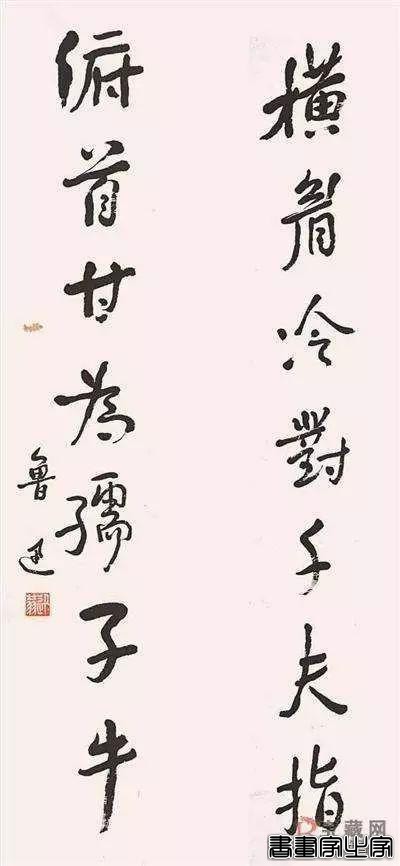 橫眉冷對千夫指
俯首甘為孺子牛
魯迅
藏网
書畫家之家